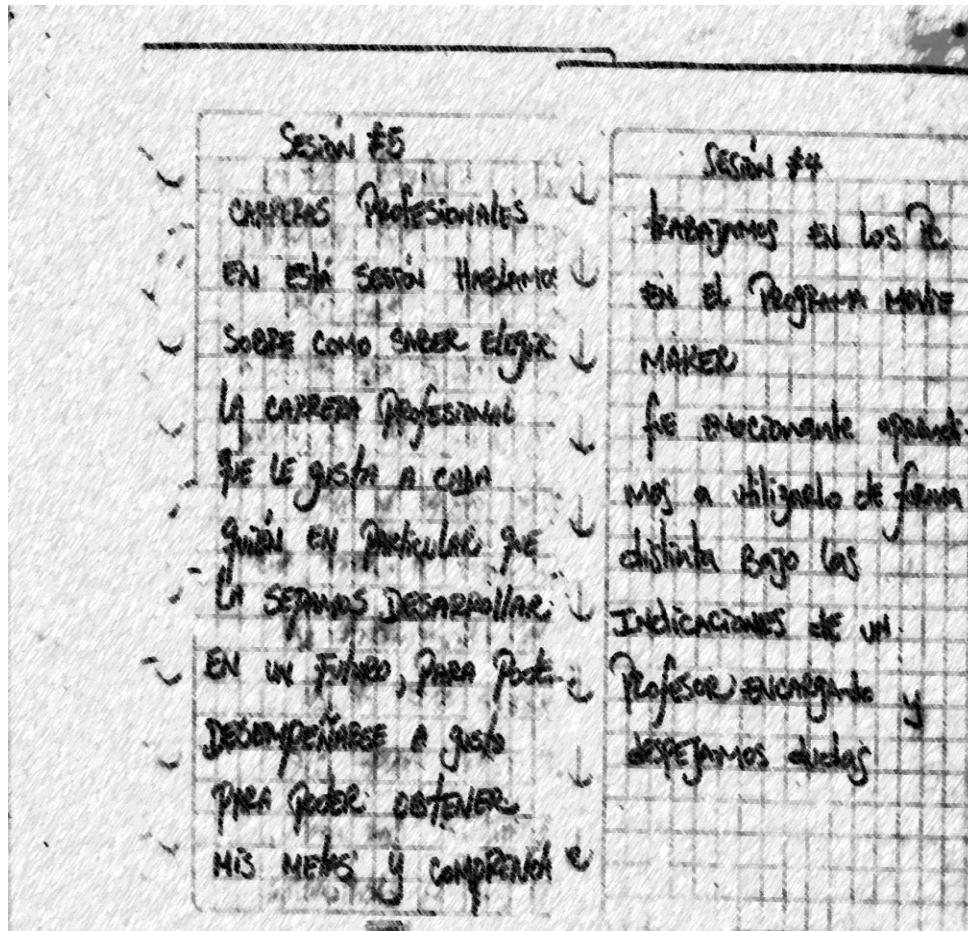 Sesión #5
CARRERAS PROFESIONALES
EN ESTÁ SESIÓN HABLAMOS
SOBRE COMO SABER ELEGIR
LA CARRERA PROFESIONAL
QUE LE GUSTA A CADA
QUIÉN EN PARTICULAR QUE
LA SEPAMOS DESARROLLAR
EN UN FUTURO, PARA PODER
DESEMPEÑARSE A GUSTO
PARA PODER OBTENER
MIS METAS Y
Sesión #4
TRABAJAMOS EN LOS PC
EN EL PROGRAMA MOVIE
MAKER
fue emocionante aprendi-
mos a utilizarlo de forma
distinta Bajo las
INDICACIONES DE UN
PROFESOR ENCARGADO y
DESPEJAMOS dudas